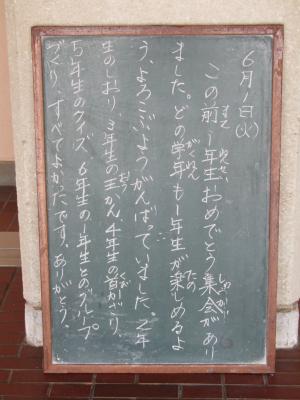 6月1日(火)
この前1年生おめでとう集会があり
ました。どの学年も1年生が楽しめるよ
う、よろこぶようがんばっていました。2年
生のしおり、3年生の王かん、4年生の首かざり、
5年生のクイズ、6年生の1年生とのグループ
づくり、すべてよかったです。ありがとう。